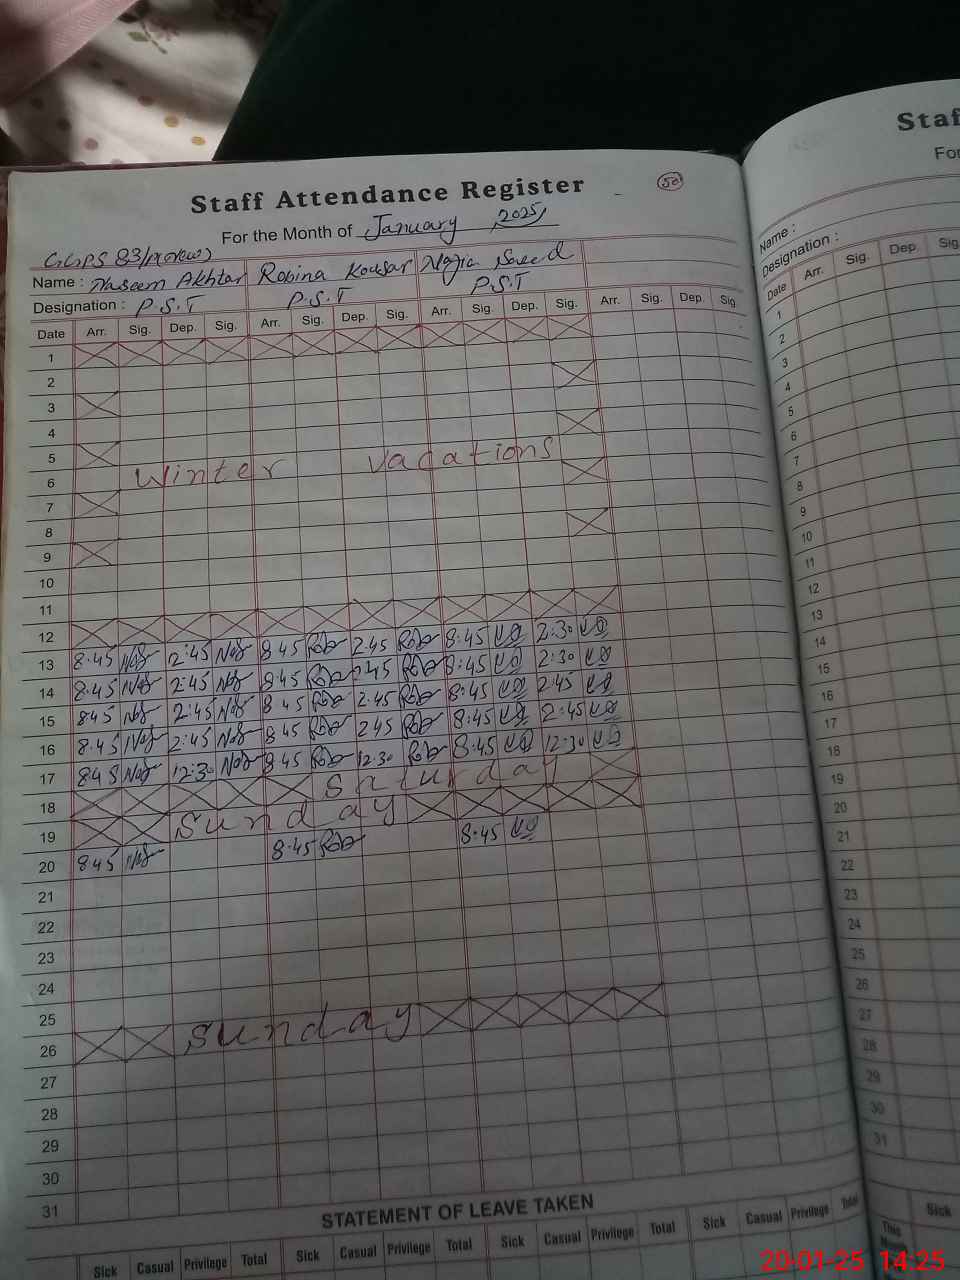 Staff Attendance Register
50
For the Month of January 2025
G.G.P.S 83/P(new)
Name : Naseem Akhtar Robina Kousar Nazia Saeed
Designation : P.S.T P.S.T P.S.T
Date Arr. Sig. Dep. Sig. Arr. Sig. Dep. Sig. Arr. Sig. Dep. Sig. Arr. Sig. Dep. Sig.
1
2
3
4
5
6 Winter Vacations
7
8
9
10
11
12
13 8.45 2:45 8 45 2.45 8:45 2:30
14 8.45 2:45 8:45 2:45 8:45 2:30
15 845 2:45 8 45 2.45 8:45 2:45
16 8.45 2:45 8 45 2 45 8:45 2:45
17 845 12:30 8 45 12.30 8:45 12:30
18 Saturday
19 Sunday
20 8.45 8.45 8.45
21
22
23
24
25
26 Sunday
27
28
29
30
31
STATEMENT OF LEAVE TAKEN
Sick Casual Privilege Total Sick Casual Privilege Total Sick Casual Privilege Total Sick Casual Privilege Total
Staf
Name :
Designation :
Date Arr. Sig. Dep.
1
2
3
4
5
6
7
8
9
10
11
12
13
14
15
16
17
18
19
20
21
22
23
24
25
26
27
28
29
30
31
Sick
This
20-01-25 14:25